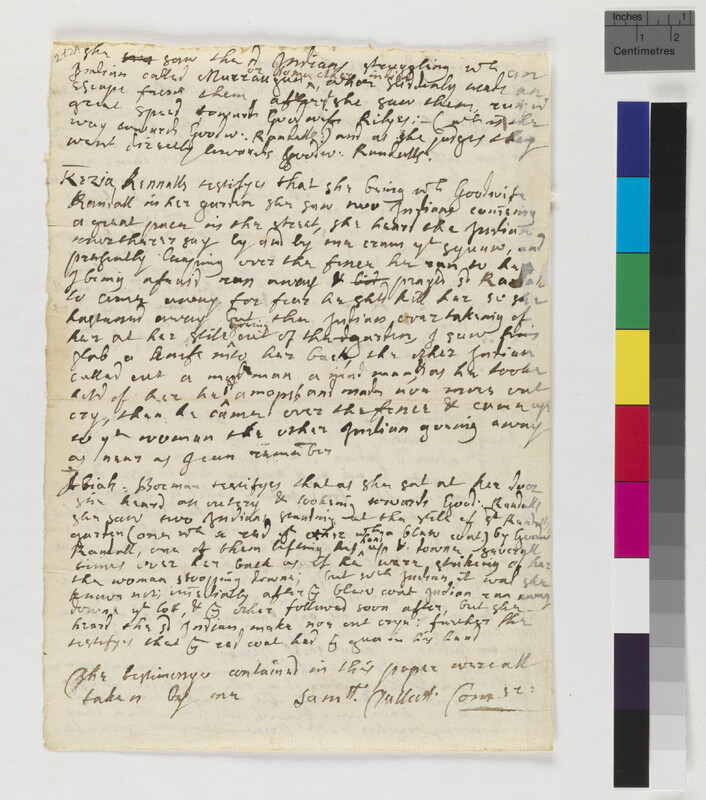 she saw the sd Indians strugling wth an
Indian called or some other indian, who sudenly made an
Escape from them, after she saw them, run wth
great speed towards Goodwife Rileys:
way towards Goodw: Randalls and as she judges they
went directly towards Goodw: Randalls.
Kezia Kennalls testifyes that she being wth Goodwife
Randall in her garden she saw two Indians coming
a great pace in the street, she heard the Indian
murtherer say by and by me cram yt squaw, and
presently leaping over the fence he ran to her
I being afraid ran away & prayed Randall
to come away for fear he shld kill her so she
hastened away but the Indian overtakeing of
her at her stile going out of the garden I saw him
stab a knife into her back, the other Indian
called out a mad man a mad man, as he tooke
hold of her he and made no more out
cry, then he came over the fence & came up
to yt woman the other Indian goeing away
as near as I can remember
Abiah: Borman testifyes that as she sat at her door
she heard an outcry & looking towards Good: Randalls
she saw two Indians standing at the stile of sd Randalls
garden (one wth a red & other with a blew coat) by Goodw
Randall, one of them lifting his hand up & downe severall
times over her back as if he were strikeing of her
the woman stooping downe; but wch Indian it was she
knows not; immediatly after ye blew coat Indian ran away
downe yt lot, & ye other followed soon after, but she
heard the sd Indian make noe out crye: further she
testifyes that ye red coat had ye gun in his hand
The testimonyes contained in this paper were all
taken by me Samll. Talcott. Comssr:
Inches 1
1 2
Centimetres